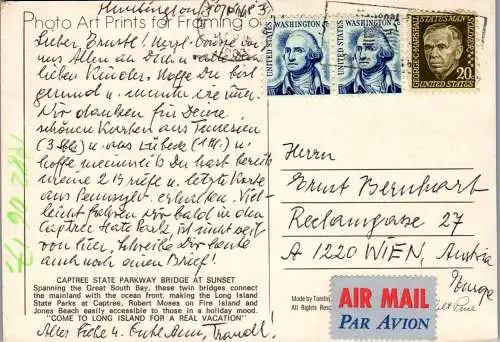 Huntington
Photo Art Prints for Framing or
Lieber Ernstl! Herzl. Grüsse von
uns Allen an Dich u.
lieben Kinder. Hoffe Du bist
gesund u. munter wie wir.
Wir danken für Deine
schönen Karten aus Tunesien
(3 Stk) u. aus Lübeck (1 Stk.) u.
hoffe meinerseits Du hast bereits
meine 2 Briefe u. letzte Karte
aus Pennsylv. erhalten. Viel-
leicht fahren wir bald in den
Captree State Park, ist nicht weit
von hier. Schreibe Dir heute
auch noch einen Brief!
CAPTREE STATE PARKWAY BRIDGE AT SUNSET
Spanning the Great South Bay, these twin bridges connect
the mainland with the ocean front, making the Long Island
State Parks at Captree, Robert Moses on Fire Island and
Jones Beach easily accessible to those in a holiday mood.
"COME TO LONG ISLAND FOR A REAL VACATION"
Alles Liebe u. Gute Dein, Traudl!
UNITED STATES
WASHINGTON
5c
UNITED STATES
WASHINGTON
GEORGE C. MARSHALL
STATESMAN
SOLDIER
20c
UNITED STATES
Herrn
Ernst Bernhart
Reclamgasse 27
A 1220 WIEN, Austria
Europe
Made by
All Rights Res
AIR MAIL
PAR AVION